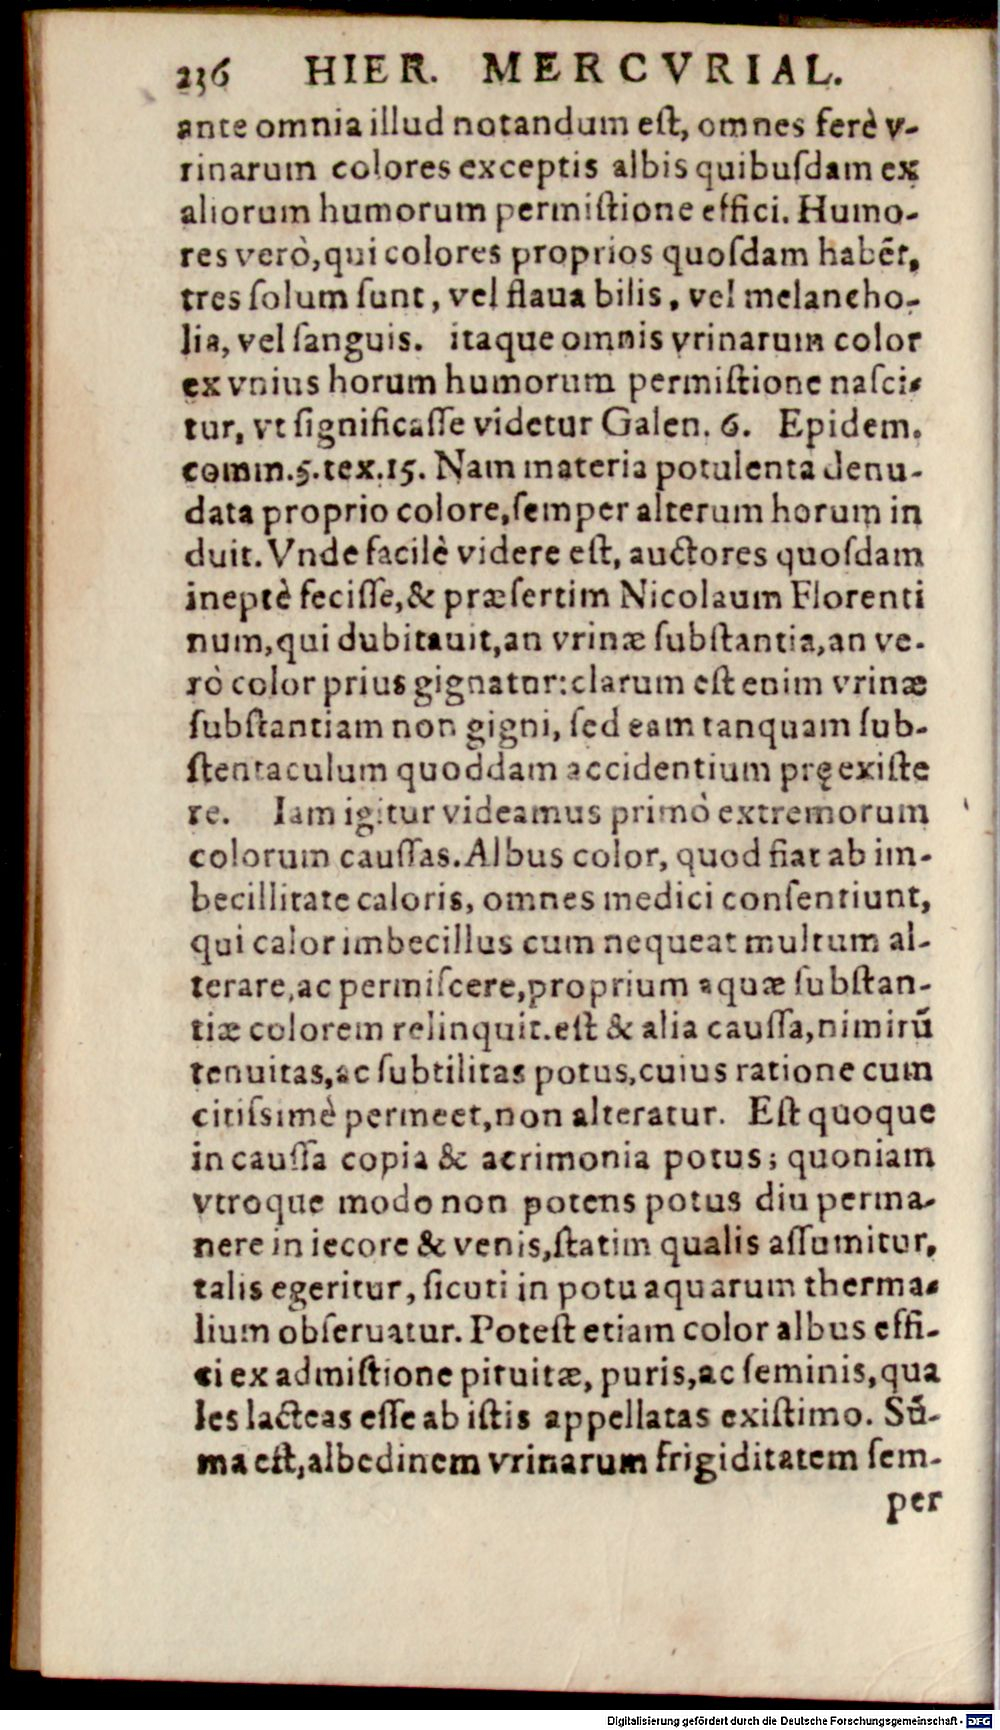 236 HIER. MERCVRIAL.
ante omnia illud notandum eſt, omnes ferè v-
rinarum colores exceptis albis quibuſdam ex
aliorum humorum permiſtione effici. Humo-
res verò, qui colores proprios quoſdam habẽt,
tres ſolum ſunt, vel flaua bilis, vel melancho-
lia, vel ſanguis. itaque omnis vrinarum color
ex vnius horum humorum permiſtione naſci-
tur, vt ſignificaſſe videtur Galen. 6. Epidem.
comm.5.tex.15. Nam materia potulenta denu-
data proprio colore, ſemper alterum horum in
duit. Vnde facilè videre eſt, auctores quoſdam
ineptè feciſſe, & præſertim Nicolaum Florenti
num, qui dubitauit, an vrinæ ſubſtantia, an ve-
rò color prius gignatur: clarum eſt enim vrinæ
ſubſtantiam non gigni, ſed eam tanquam ſub-
ſtentaculum quoddam accidentium pręexiſte
re. Iam igitur videamus primò extremorum
colorum cauſſas. Albus color, quod fiat ab im-
becillitate caloris, omnes medici conſentiunt,
qui calor imbecillus cum nequeat multum al-
terare, ac permiſcere, proprium aquæ ſubſtan-
tiæ colorem relinquit. eſt & alia cauſſa, nimirũ
tenuitas, ac ſubtilitas potus, cuius ratione cum
citiſsimè permeet, non alteratur. Eſt quoque
in cauſſa copia & acrimonia potus; quoniam
vtroque modo non potens potus diu perma-
nere in iecore & venis, ſtatim qualis aſſumitur,
talis egeritur, ſicuti in potu aquarum therma-
lium obſeruatur. Poteſt etiam color albus effi-
ci ex admiſtione pituitæ, puris, ac ſeminis, qua
les lacteas eſſe ab iſtis appellatas exiſtimo. Sũ-
ma eſt, albedinem vrinarum frigiditatem ſem-
per
Digitalisierung gefördert durch die Deutsche Forschungsgemeinschaft - DFG